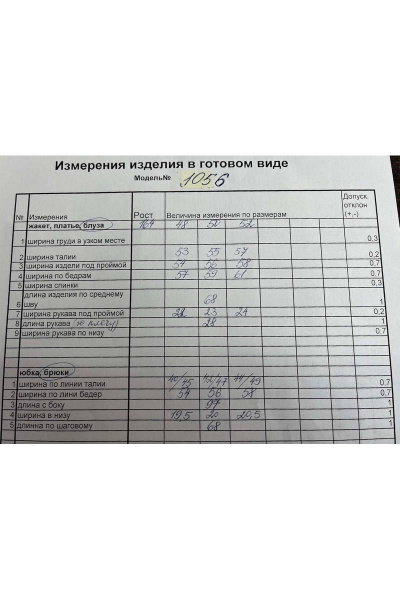 Измерения изделия в готовом виде
Модель№ 1056
№ Измерения Рост Величина измерения по размерам Допуск. отклон (+,-)
жакет, платье, блуза 164 48 50 52
1 ширина груди в узком месте 0,3
2 ширина талии 53 55 57 0,2
3 ширина издели под проймой 54 56 58 0,7
4 ширина по бедрам 57 59 61 0,7
5 ширина спинки 0,3
длина изделия по среднему
6 шву 68 1
7 ширина рукава под проймой 22 23 24 0,2
8 длина рукава (по плечу) 28 1
9 ширина рукава по низу 0,7
юбка, брюки
1 ширина по линии талии 40/45 42/47 44/49 0,7
2 ширина по лини бедер 54 56 58 1
3 длина с боку 97 1
4 ширина в низу 19,5 20 20,5 1
5 длинна по шаговому 68